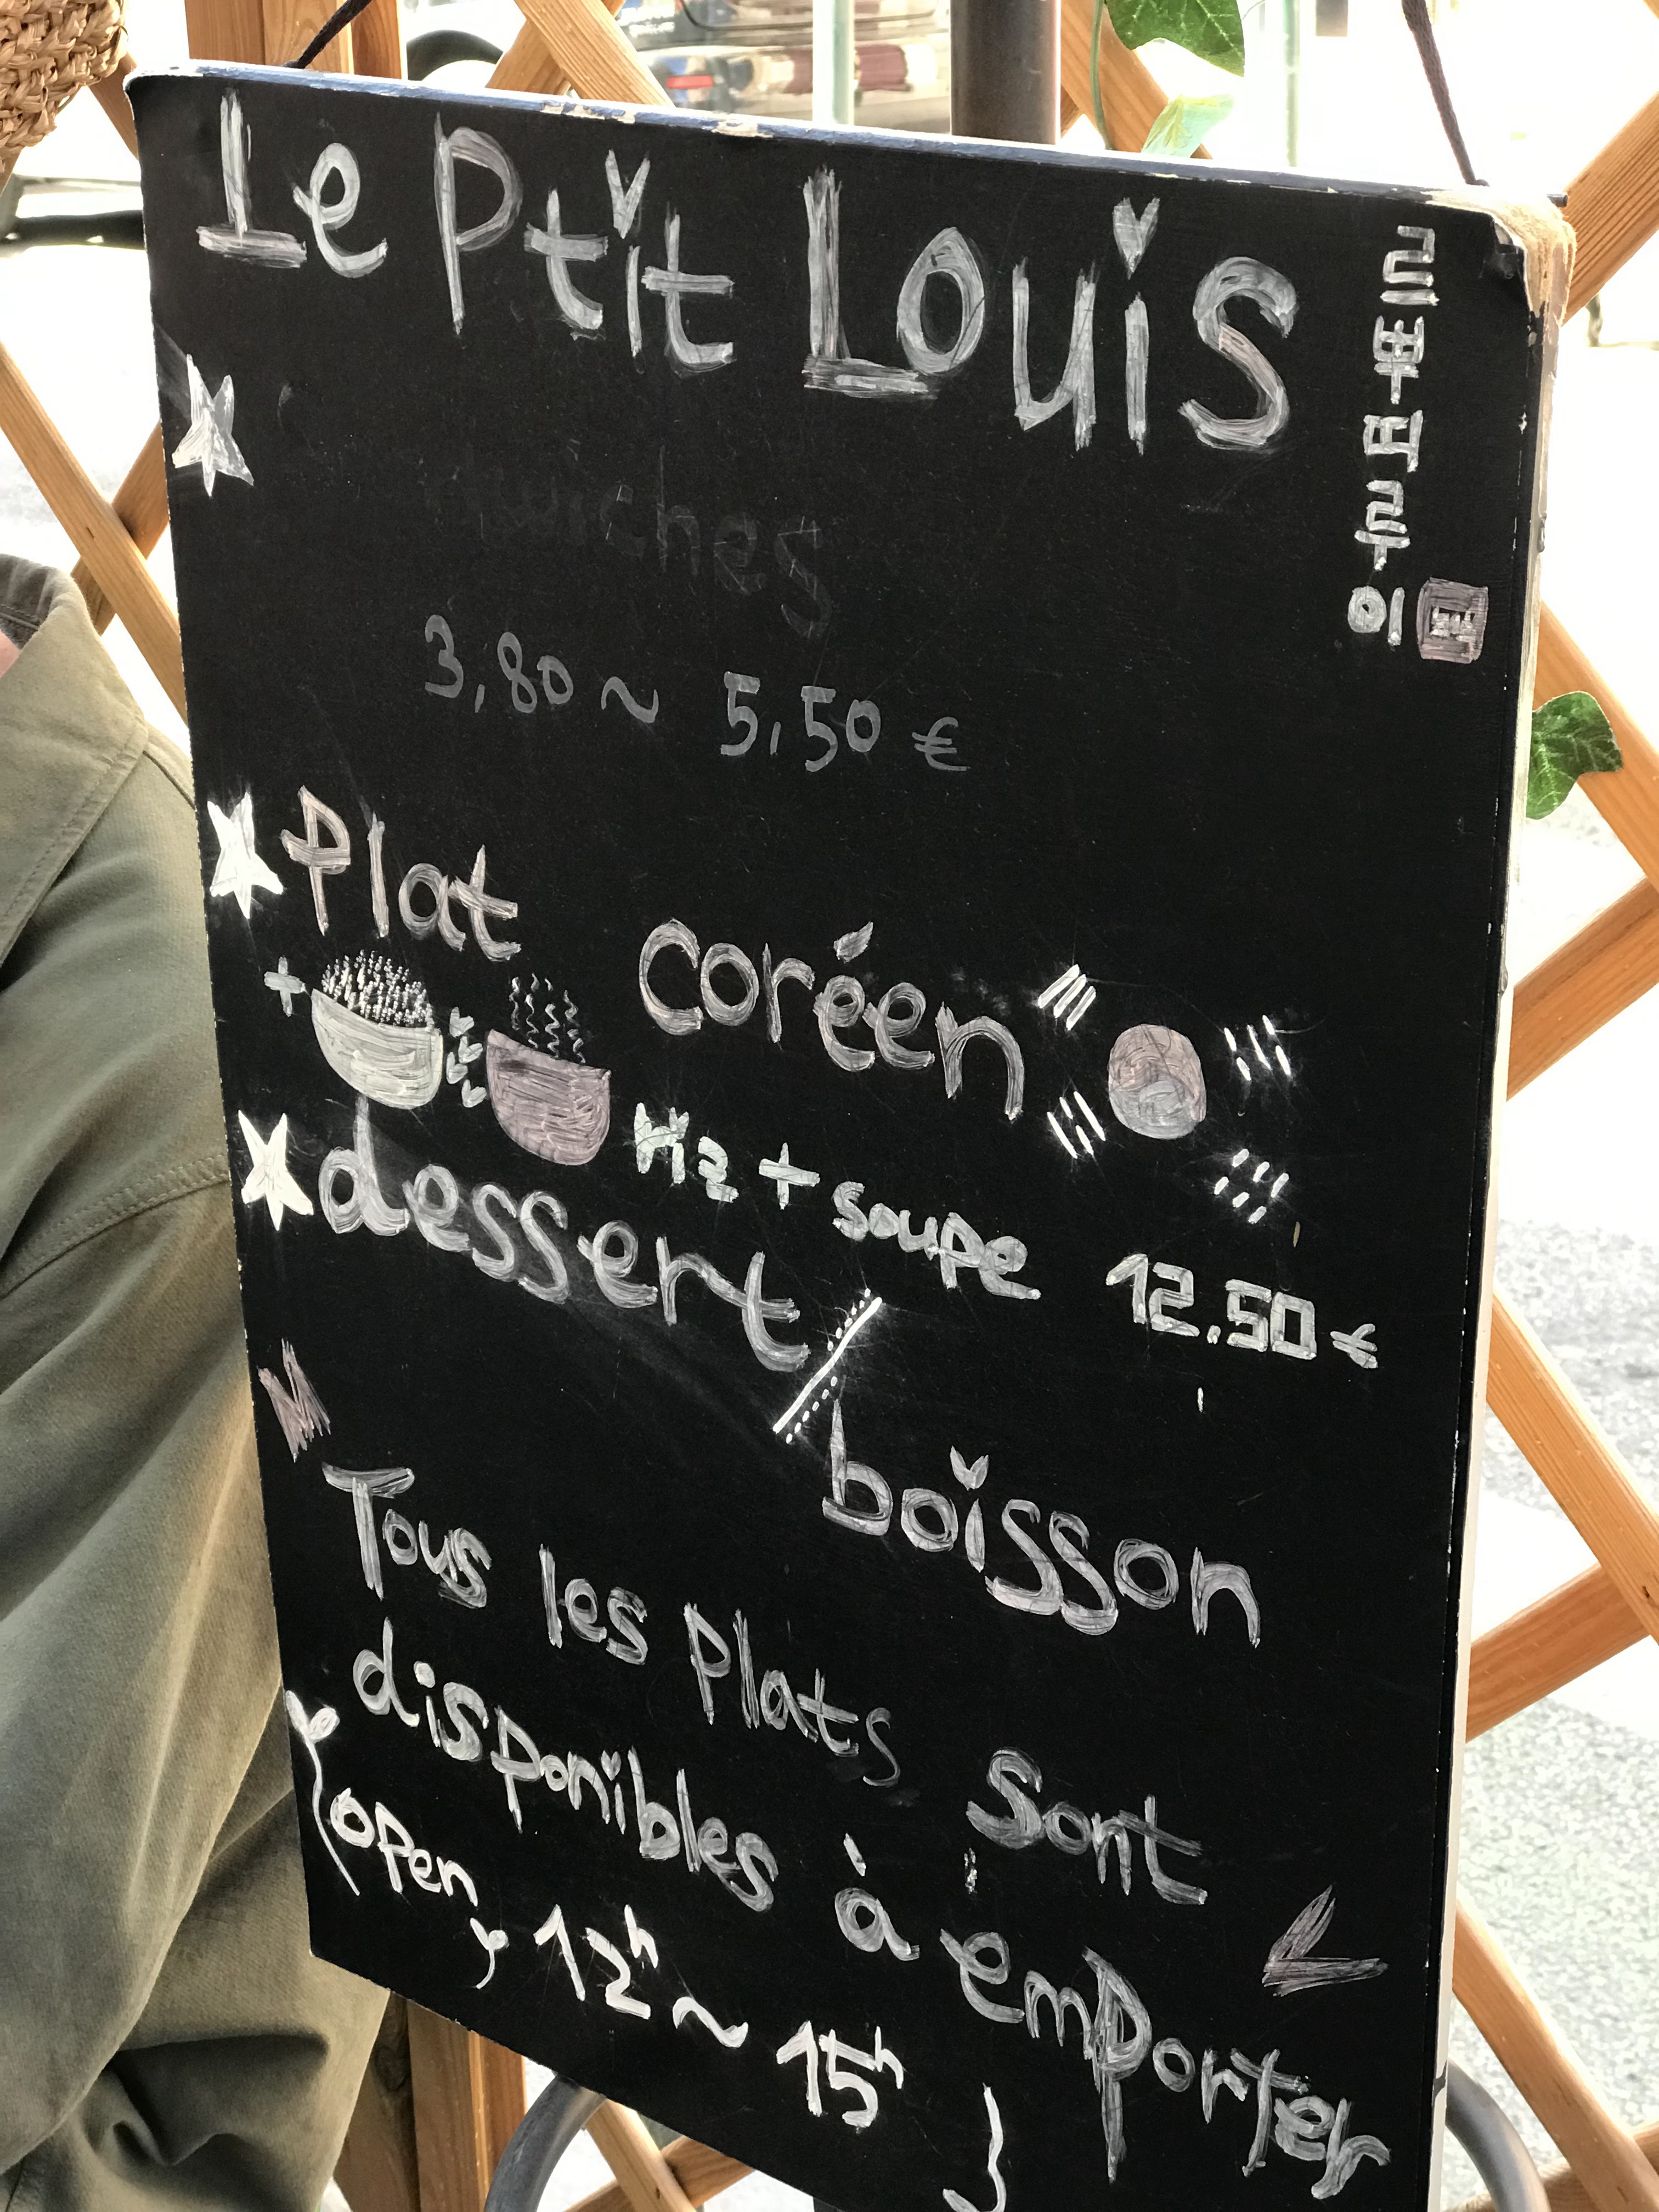 Le Ptit Louis
르쁘띠루이
3,80 ~ 5,50 €
Plat coréen
+ riz + soupe 12.50 €
dessert / boisson
Tous les Plats sont
disponibles à emporter
open 12h ~ 15h